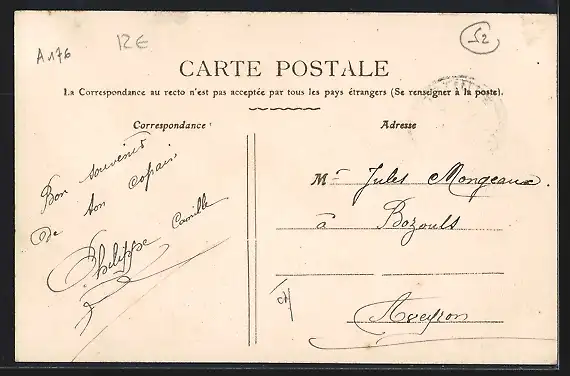 A176
RE
52
CARTE POSTALE
La Correspondance au recto n'est pas acceptée par tous les pays étrangers (Se renseigner à la poste).
Correspondance
Bon souvenir
De ton copain
Philippe Camille
Adresse
Mr Jules Mongeaux
à Bozouls
Aveyron